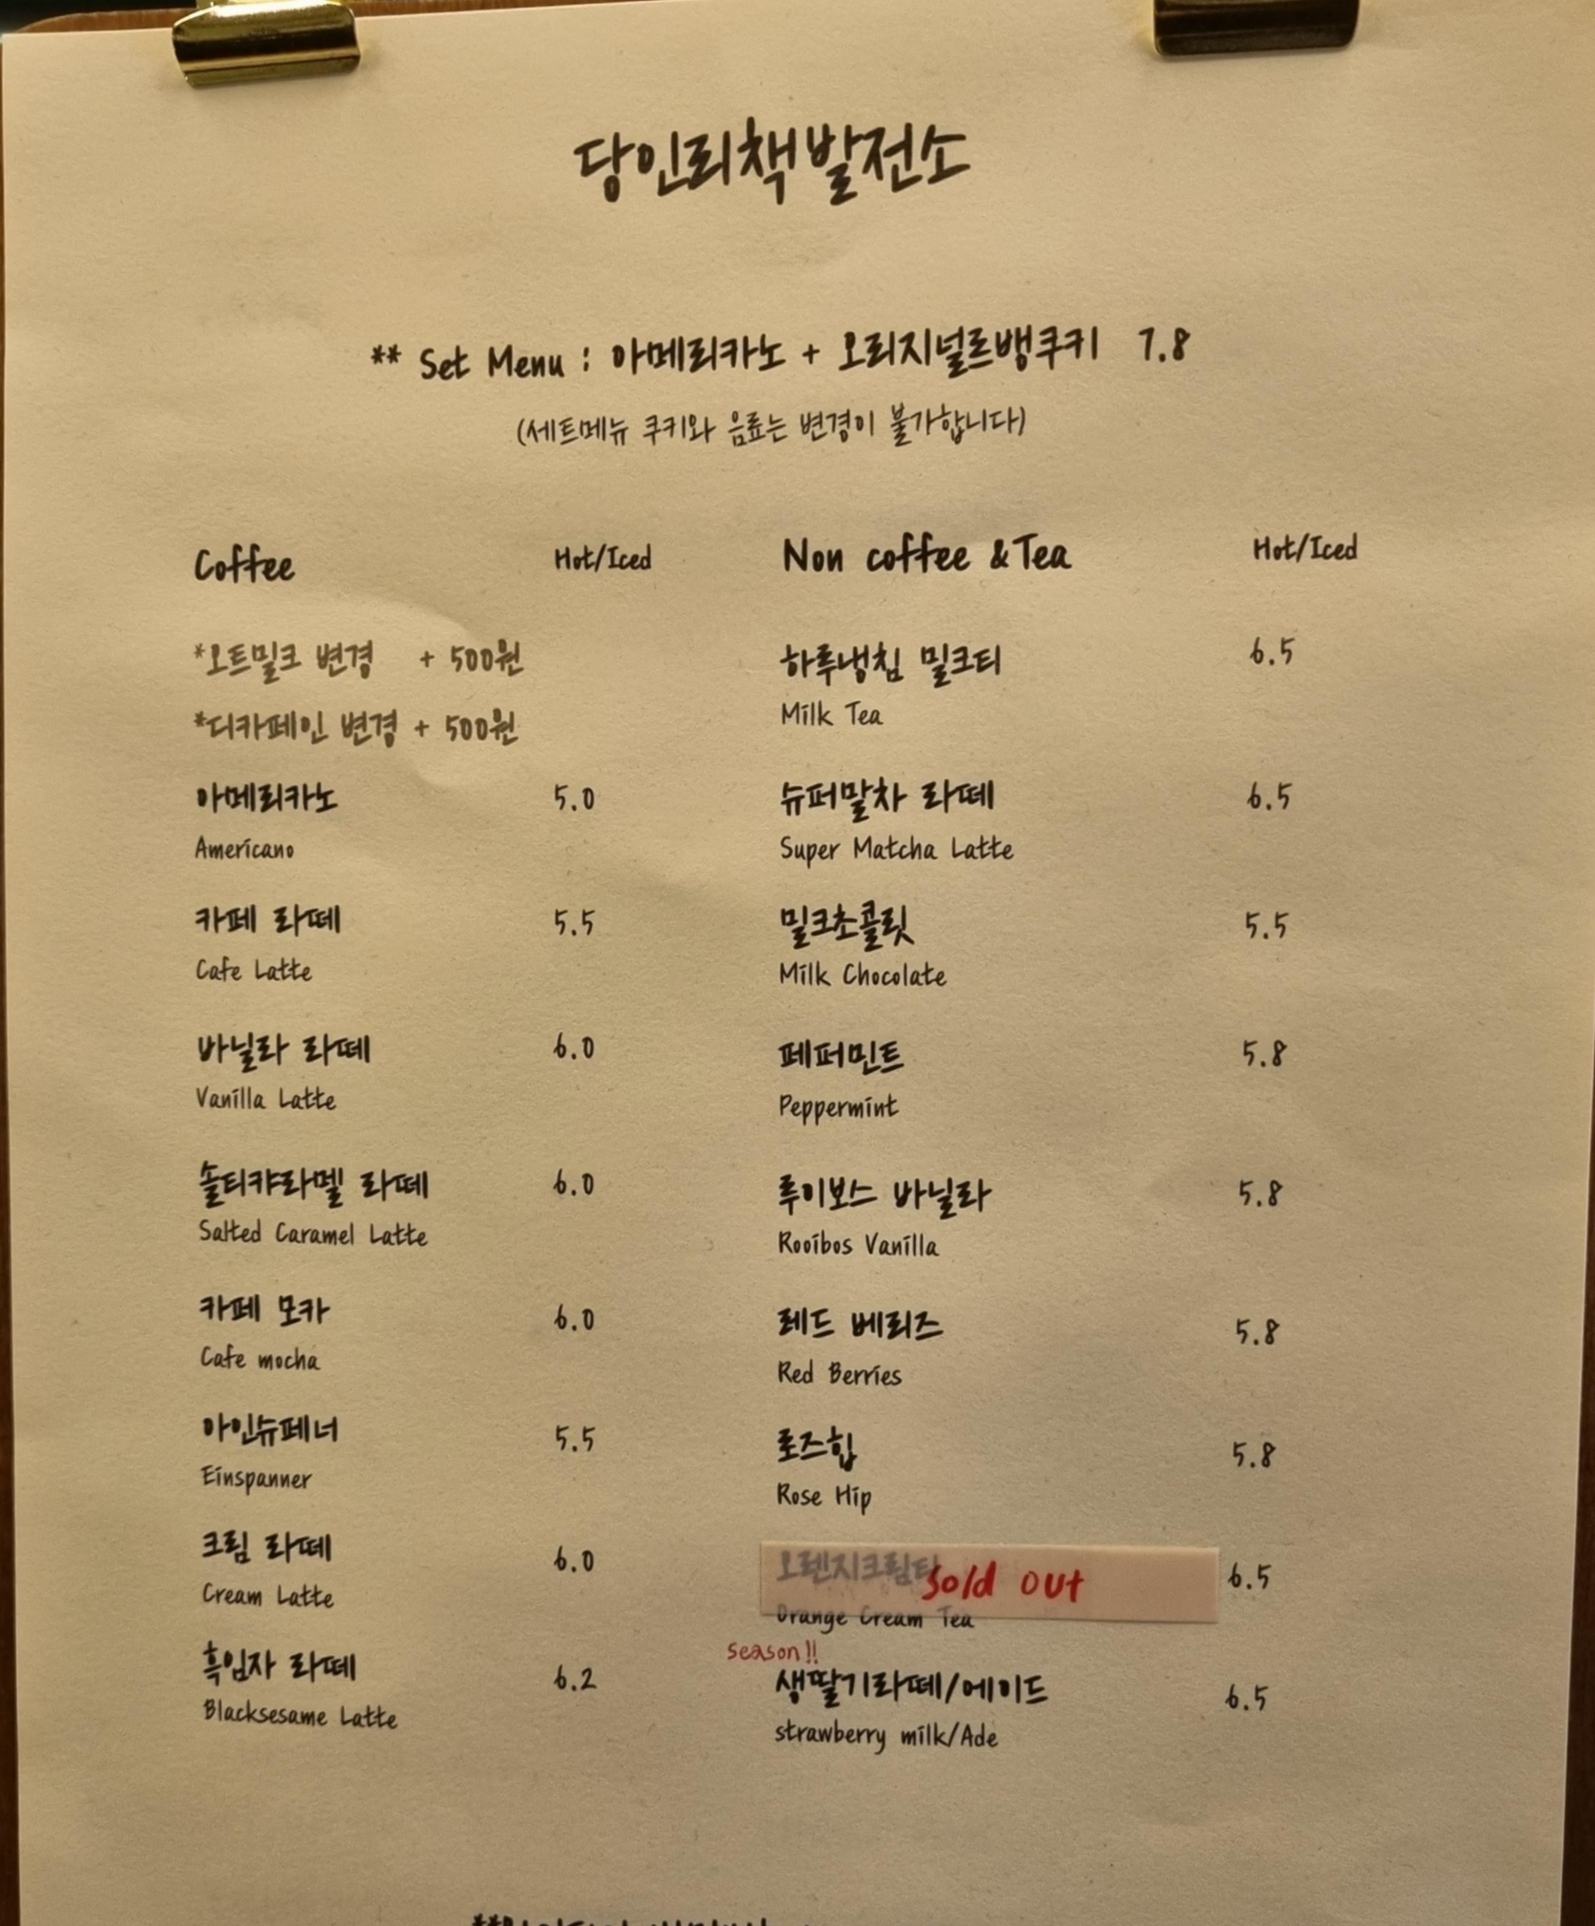 당인리책발전소
** Set Menu : 아메리카노 + 오리지널르뱅쿠키 7.8
(세트메뉴 쿠키와 음료는 변경이 불가합니다)
Coffee Hot/Iced
*오트밀크 변경 + 500원
*디카페인 변경 + 500원
아메리카노 5.0
Americano
카페 라떼 5.5
Cafe Latte
바닐라 라떼 6.0
Vanilla Latte
솔티캬라멜 라떼 6.0
Salted Caramel Latte
카페 모카 6.0
Cafe mocha
아인슈페너 5.5
Einspanner
크림 라떼 6.0
Cream Latte
흑임자 라떼 6.2
Blacksesame Latte
Non coffee & Tea Hot/Iced
하루냉침 밀크티 6.5
Milk Tea
슈퍼말차 라떼 6.5
Super Matcha Latte
밀크초콜릿 5.5
Milk Chocolate
페퍼민트 5.8
Peppermint
루이보스 바닐라 5.8
Rooibos Vanilla
레드 베리즈 5.8
Red Berries
로즈힙 5.8
Rose Hip
오렌지크림티 Sold out 6.5
Orange Cream Tea
season!!
생딸기라떼/에이드 6.5
strawberry milk/Ade